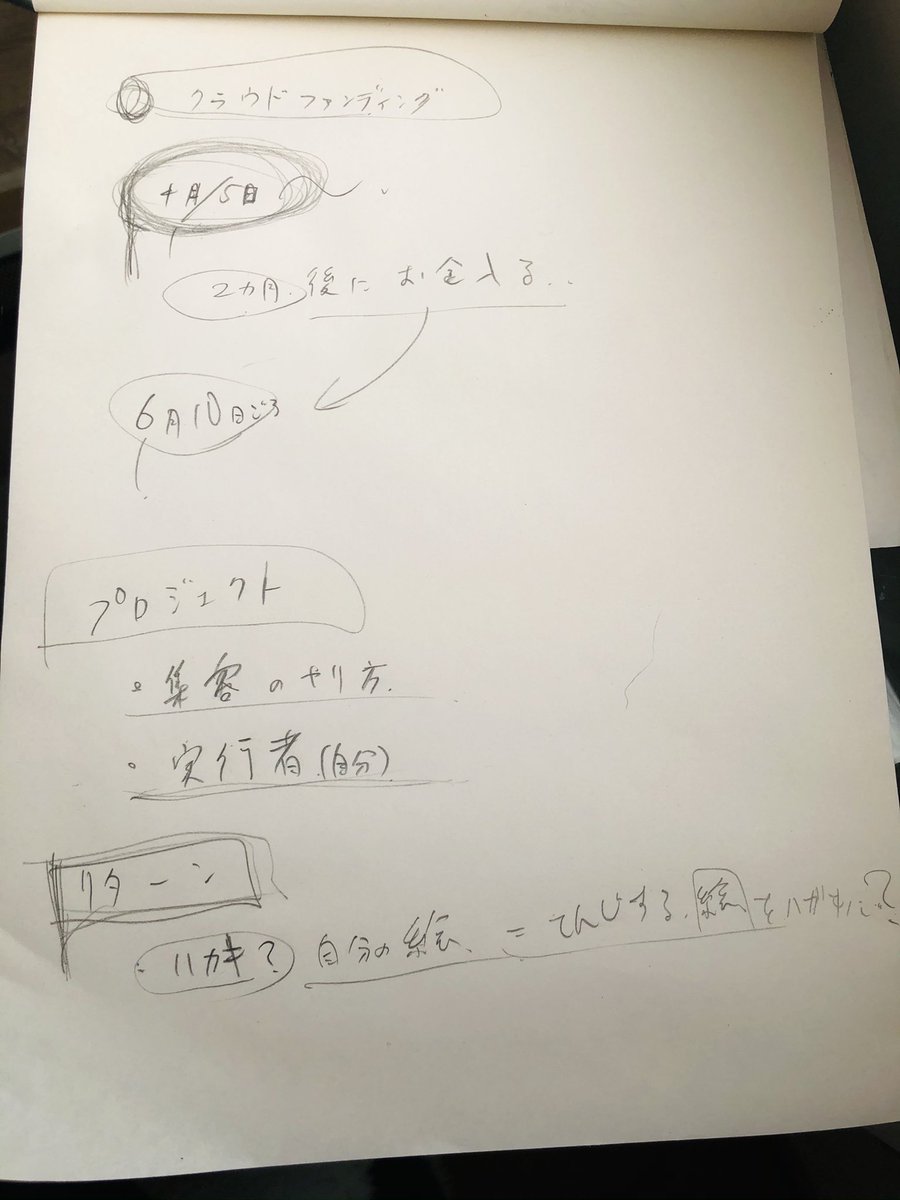 クラウドファンディング
4月/5日 〜
2カ月後にお金入る..
6月10日ごろ
プロジェクト
・集客のやり方.
・実行者(自分)
リターン
・ハガキ? 自分の絵. = てんじする.絵をハガキに?